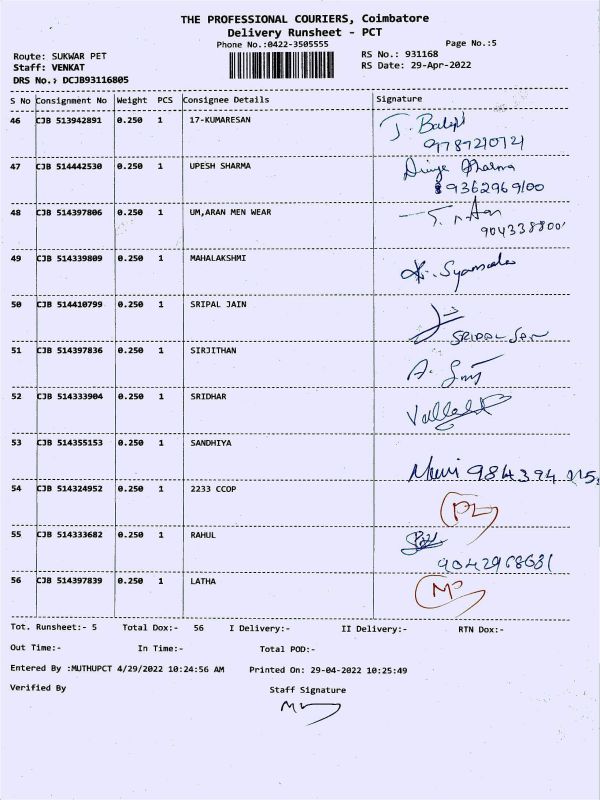 THE PROFESSIONAL COURIERS, Coimbatore
Delivery Runsheet - PCT
Phone No.:0422-3505555
Page No.:5
Route: SUKWAR PET
RS No.: 931168
Staff: VENKAT
RS Date: 29-Apr-2022
DRS No.: DCJB93116805
S No Consignment No Weight PCS Consignee Details Signature
46 CJB 513942891 0.250 1 17-KUMARESAN
9787210721
47 CJB 514442530 0.250 1 UPESH SHARMA
Sharma
9362969100
48 CJB 514397806 0.250 1 UM,ARAN MEN WEAR
49 CJB 514339809 0.250 1 MAHALAKSHMI
50 CJB 514410799 0.250 1 SRIPAL JAIN
51 CJB 514397836 0.250 1 SIRJITHAN
52 CJB 514333904 0.250 1 SRIDHAR
53 CJB 514355153 0.250 1 SANDHIYA
54 CJB 514324952 0.250 1 2233 CCOP
55 CJB 514333682 0.250 1 RAHUL
56 CJB 514397839 0.250 1 LATHA
Tot. Runsheet:- 5 Total Dox:- 56 I Delivery:- II Delivery:- RTN Dox:-
Out Time:- In Time:- Total POD:-
Entered By :MUTHUPCT 4/29/2022 10:24:56 AM Printed On: 29-04-2022 10:25:49
Verified By Staff Signature